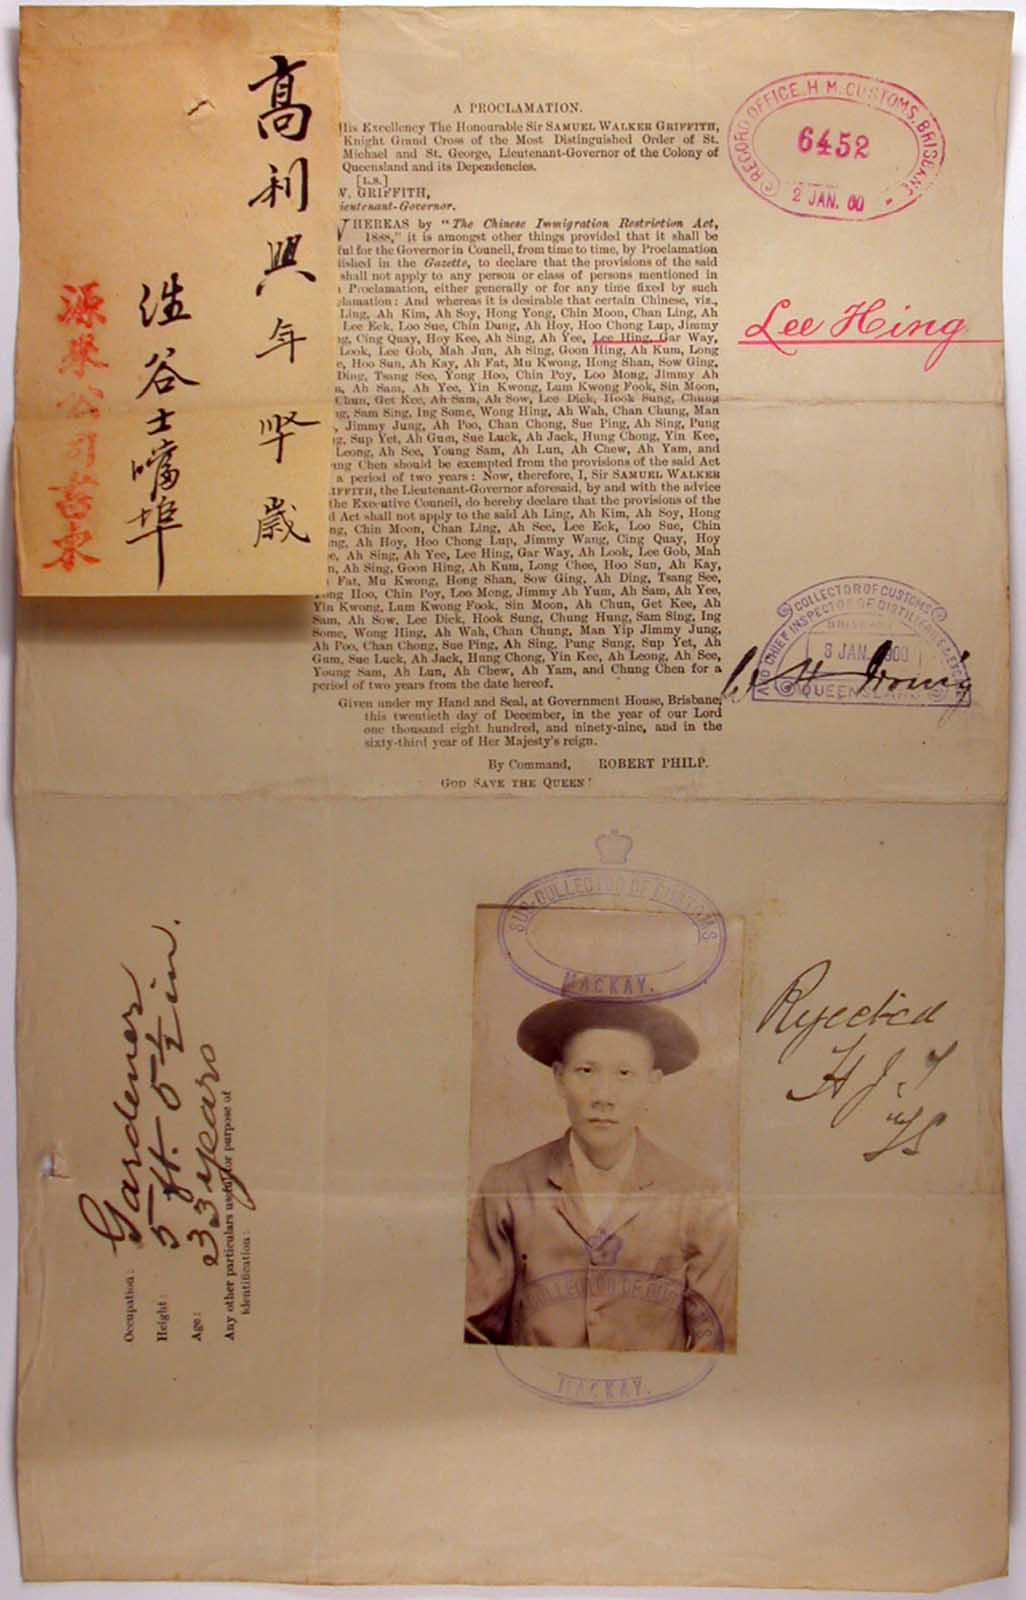 高利興年歲
谷士噹埠
源公司
A PROCLAMATION.
His Excellency The Honourable Sir SAMUEL WALKER GRIFFITH,
Knight Grand Cross of the Most Distinguished Order of St.
Michael and St. George, Lieutenant-Governor of the Colony of
Queensland and its Dependencies.
[L.S.]
W. GRIFFITH,
ieutenant-Governor.
WHEREAS by "The Chinese Immigration Restriction Act,
1888," it is amongst other things provided that it shall be
ful for the Governor in Council, from time to time, by Proclamation
lished in the Gazette, to declare that the provisions of the said
shall not apply to any person or class of persons mentioned in
Proclamation, either generally or for any time fixed by such
lamation: And whereas it is desirable that certain Chinese, viz.,
Ling, Ah Kim, Ah Soy, Hong Yong, Chin Moon, Chan Ling, Ah
Lee Eck, Loo Sue, Chin Dung, Ah Hoy, Hoo Chong Lup, Jimmy
g, Cing Quay, Hoy Kee, Ah Sing, Ah Yee, Lee Hing, Gar Way,
Look, Lee Gob, Mah Jun, Ah Sing, Goon Hing, Ah Kum, Long
e, Hoo Sun, Ah Kay, Ah Fat, Mu Kwong, Hong Shan, Sow Ging,
Ding, Tsang See, Yong Hoo, Chin Poy, Loo Mong, Jimmy Ah
Ah Sam, Ah Yee, Yin Kwong, Lum Kwong Fook, Sin Moon,
Chun, Get Kee, Ah Sam, Ah Sow, Lee Dick, Hook Sung, Chung
g, Sam Sing, Ing Some, Wong Hing, Ah Wah, Chan Chung, Man
, Jimmy Jung, Ah Poo, Chan Chong, Sue Ping, Ah Sing, Pung
g, Sup Yet, Ah Gum, Sue Luck, Ah Jack, Hung Chong, Yin Kee,
Leong, Ah See, Young Sam, Ah Lun, Ah Chew, Ah Yam, and
ung Chen should be exempted from the provisions of the said Act
a period of two years: Now, therefore, I, Sir SAMUEL WALKER
IFFITH, the Lieutenant-Governor aforesaid, by and with the advice
the Executive Council, do hereby declare that the provisions of the
d Act shall not apply to the said Ah Ling, Ah Kim, Ah Soy, Hong
ng, Chin Moon, Chan Ling, Ah See, Lee Eck, Loo Sue, Chin
ng, Ah Hoy, Hoo Chong Lup, Jimmy Wang, Cing Quay, Hoy
e, Ah Sing, Ah Yee, Lee Hing, Gar Way, Ah Look, Lee Gob, Mah
n, Ah Sing, Goon Hing, Ah Kum, Long Chee, Hoo Sun, Ah Kay,
Fat, Mu Kwong, Hong Shan, Sow Ging, Ah Ding, Tsang See,
Yong Hoo, Chin Poy, Loo Mong, Jimmy Ah Yum, Ah Sam, Ah Yee,
Yin Kwong, Lum Kwong Fook, Sin Moon, Ah Chun, Get Kee, Ah
Sam, Ah Sow, Lee Dick, Hook Sung, Chung Hung, Sam Sing, Ing
Some, Wong Hing, Ah Wah, Chan Chung, Man Yip Jimmy Jung,
Ah Poo, Chan Chong, Sue Ping, Ah Sing, Pung Sung, Sup Yet, Ah
Gum, Sue Luck, Ah Jack, Hung Chong, Yin Kee, Ah Leong, Ah See,
Young Sam, Ah Lun, Ah Chew, Ah Yam, and Chung Chen for a
period of two years from the date hereof.
Given under my Hand and Seal, at Government House, Brisbane,
this twentieth day of December, in the year of our Lord
one thousand eight hundred, and ninety-nine, and in the
sixty-third year of Her Majesty's reign.
By Command, ROBERT PHILP.
GOD SAVE THE QUEEN!
RECORD OFFICE. H.M. CUSTOMS, BRISBANE
6452
2 JAN. 00
Lee Hing
COLLECTOR OF CUSTOMS
AND CHIEF INSPECTOR OF DISTILLERIES & EXCISE
BRISBANE
3 JAN. 1900
QUEENSLAND
SUB-COLLECTOR OF CUSTOMS
MACKAY.
Rejected
H J
COLLECTOR OF CUSTOMS
MACKAY.
Occupation: Gardener.
Height: 5 ft. 5½ in.
Age: 33 years
Any other particulars useful for purpose of
Identification: